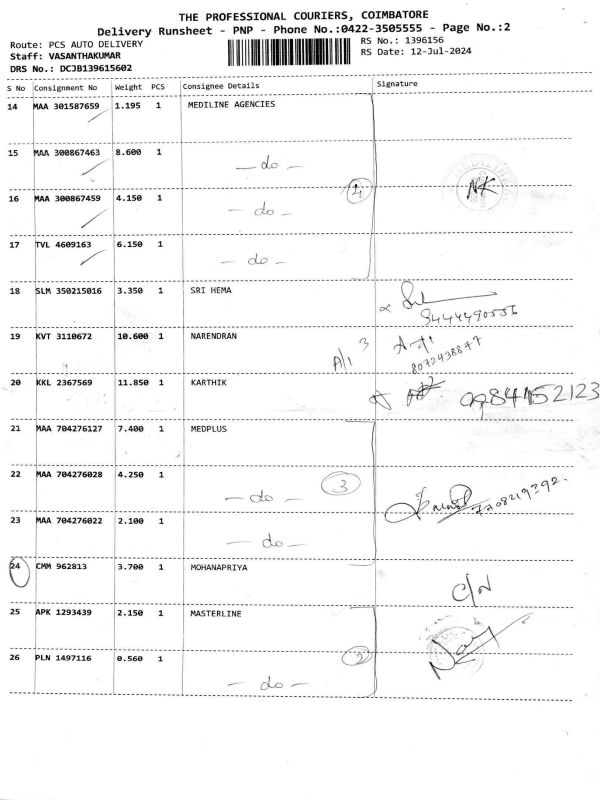 THE PROFESSIONAL COURIERS, COIMBATORE
Delivery Runsheet - PNP - Phone No.:0422-3505555 - Page No.:2
Route: PCS AUTO DELIVERY
RS No.: 1396156
Staff: VASANTHAKUMAR
RS Date: 12-Jul-2024
DRS No.: DCJB139615602
S No Consignment No Weight PCS Consignee Details Signature
14 MAA 301587659 1.195 1 MEDILINE AGENCIES
15 MAA 300867463 8.600 1
- do -
16 MAA 300867459 4.150 1 4 NK
- do -
17 TVL 4609163 6.150 1
- do -
18 SLM 350215016 3.350 1 SRI HEMA
9444490556
19 KVT 3110672 10.600 1 NARENDRAN
A/1 3
8072438877
20 KKL 2367569 11.850 1 KARTHIK
21 MAA 704276127 7.400 1 MEDPLUS
22 MAA 704276028 4.250 1
- do - 3
7708219392.
23 MAA 704276022 2.100 1
- do -
24 CMM 962813 3.700 1 MOHANAPRIYA
C/N
25 APK 1293439 2.150 1 MASTERLINE
26 PLN 1497116 0.560 1 2
- do -